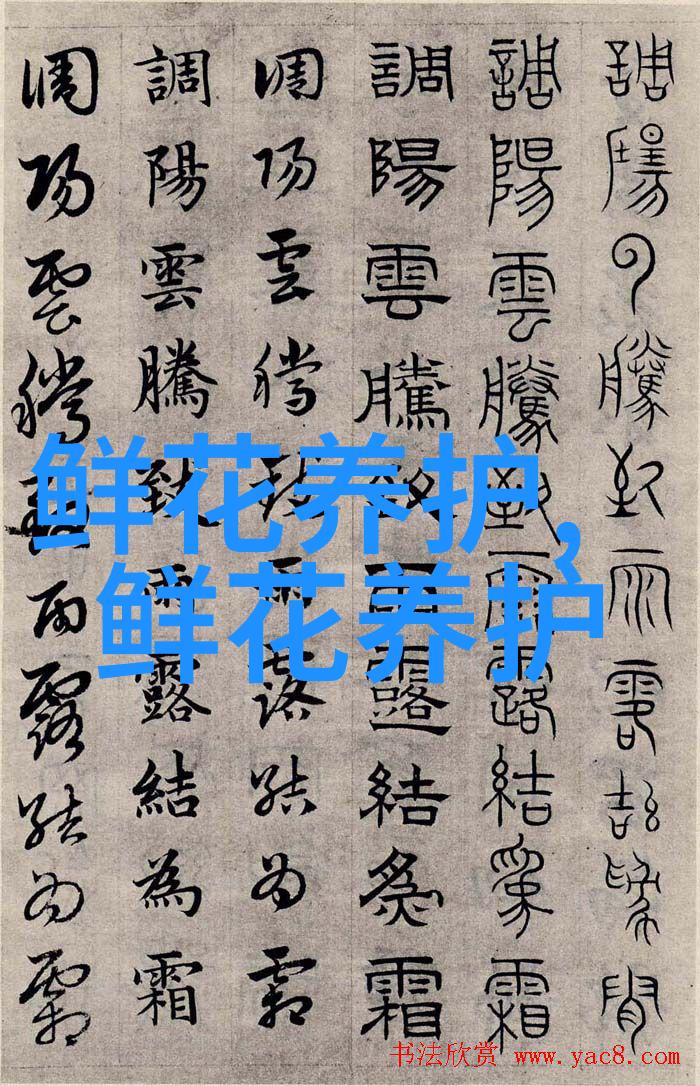 調陽雲騰致雨露結為霜
調陽雲騰致雨露結為霜
調陽雲騰致雨露結為霜
調陽雲騰致雨露結為霜
調陽雲騰致雨露結為霜
調陽雲騰致雨露結為霜
鲜花养护,
鲜花养护
书法欣赏 www.yac8.com